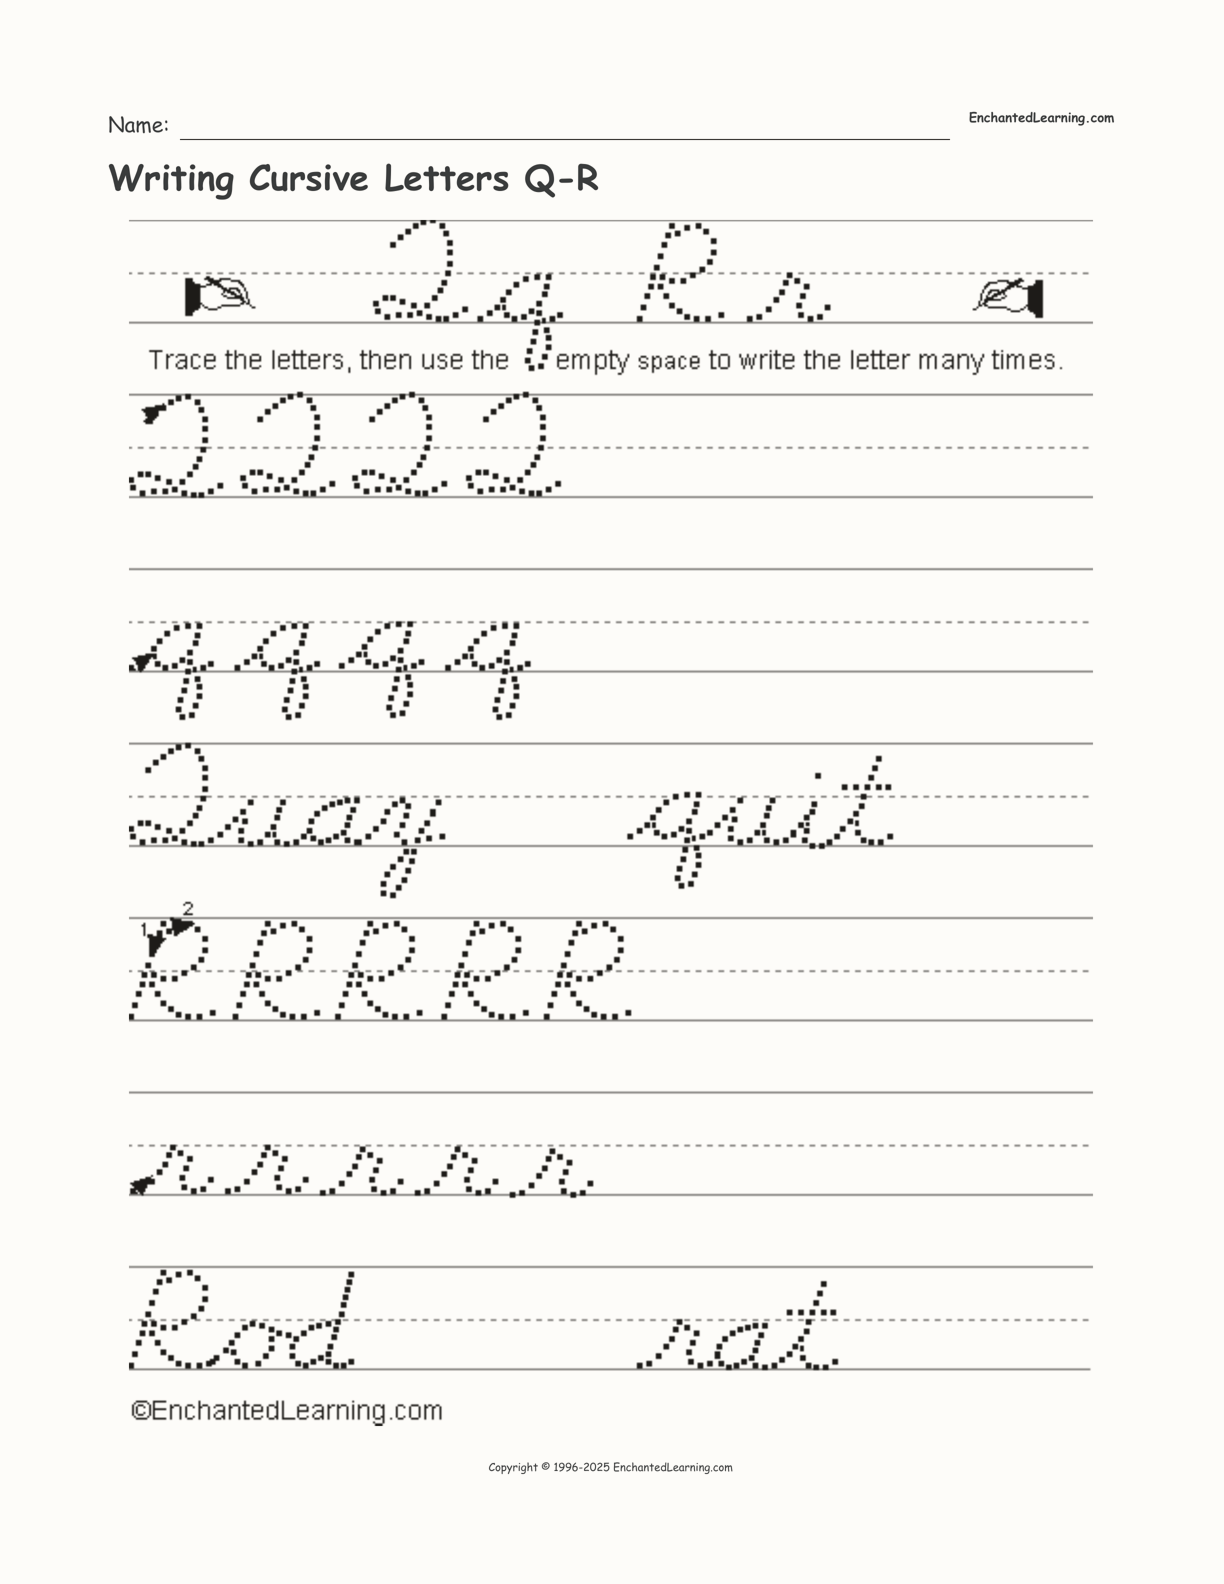 Name: EnchantedLearning.com
Writing Cursive Letters Q-R
Q q R r
Trace the letters, then use the empty space to write the letter many times.
Q Q Q Q
q q q q
Quay quit
1 2
R R R R R
r r r r r
Rod rat
©EnchantedLearning.com
Copyright © 1996-2025 EnchantedLearning.com